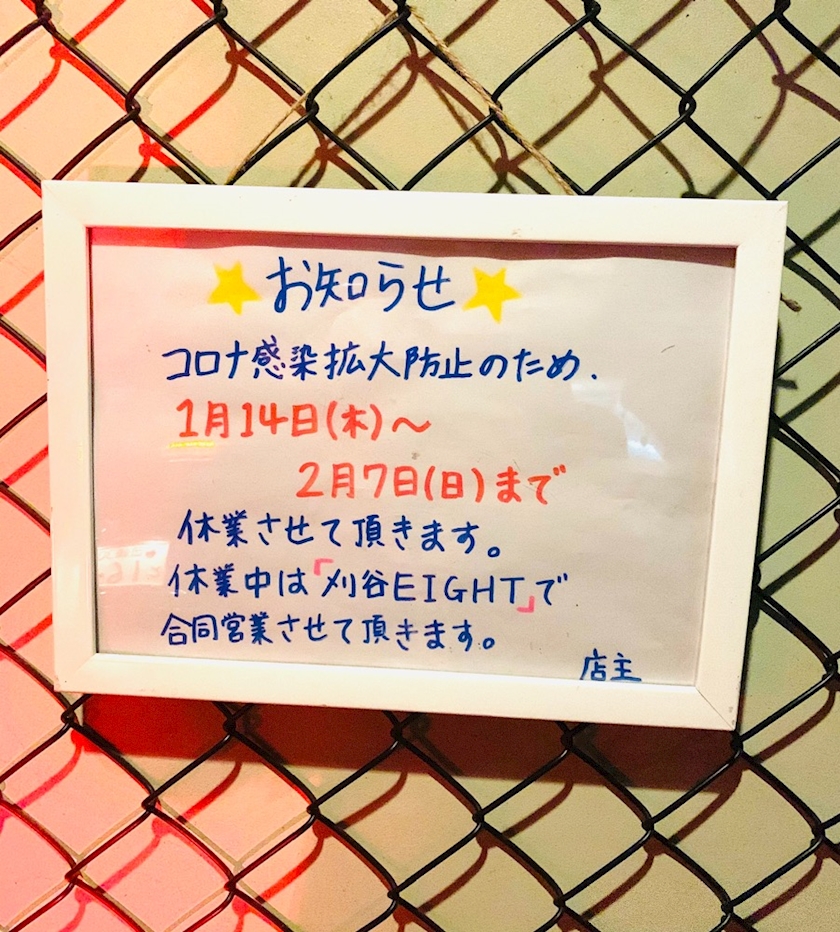 お知らせ
コロナ感染拡大防止のため、
1月14日(木)～
2月7日(日)まで
休業させて頂きます。
休業中は「刈谷EIGHT」で
合同営業させて頂きます。
店主